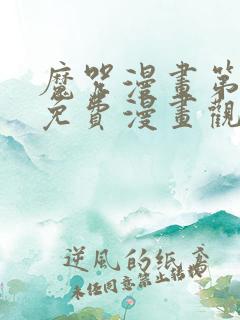 魔咒漫畫第
免費漫畫觀
逆風的紙鳶
未經同意禁止轉載